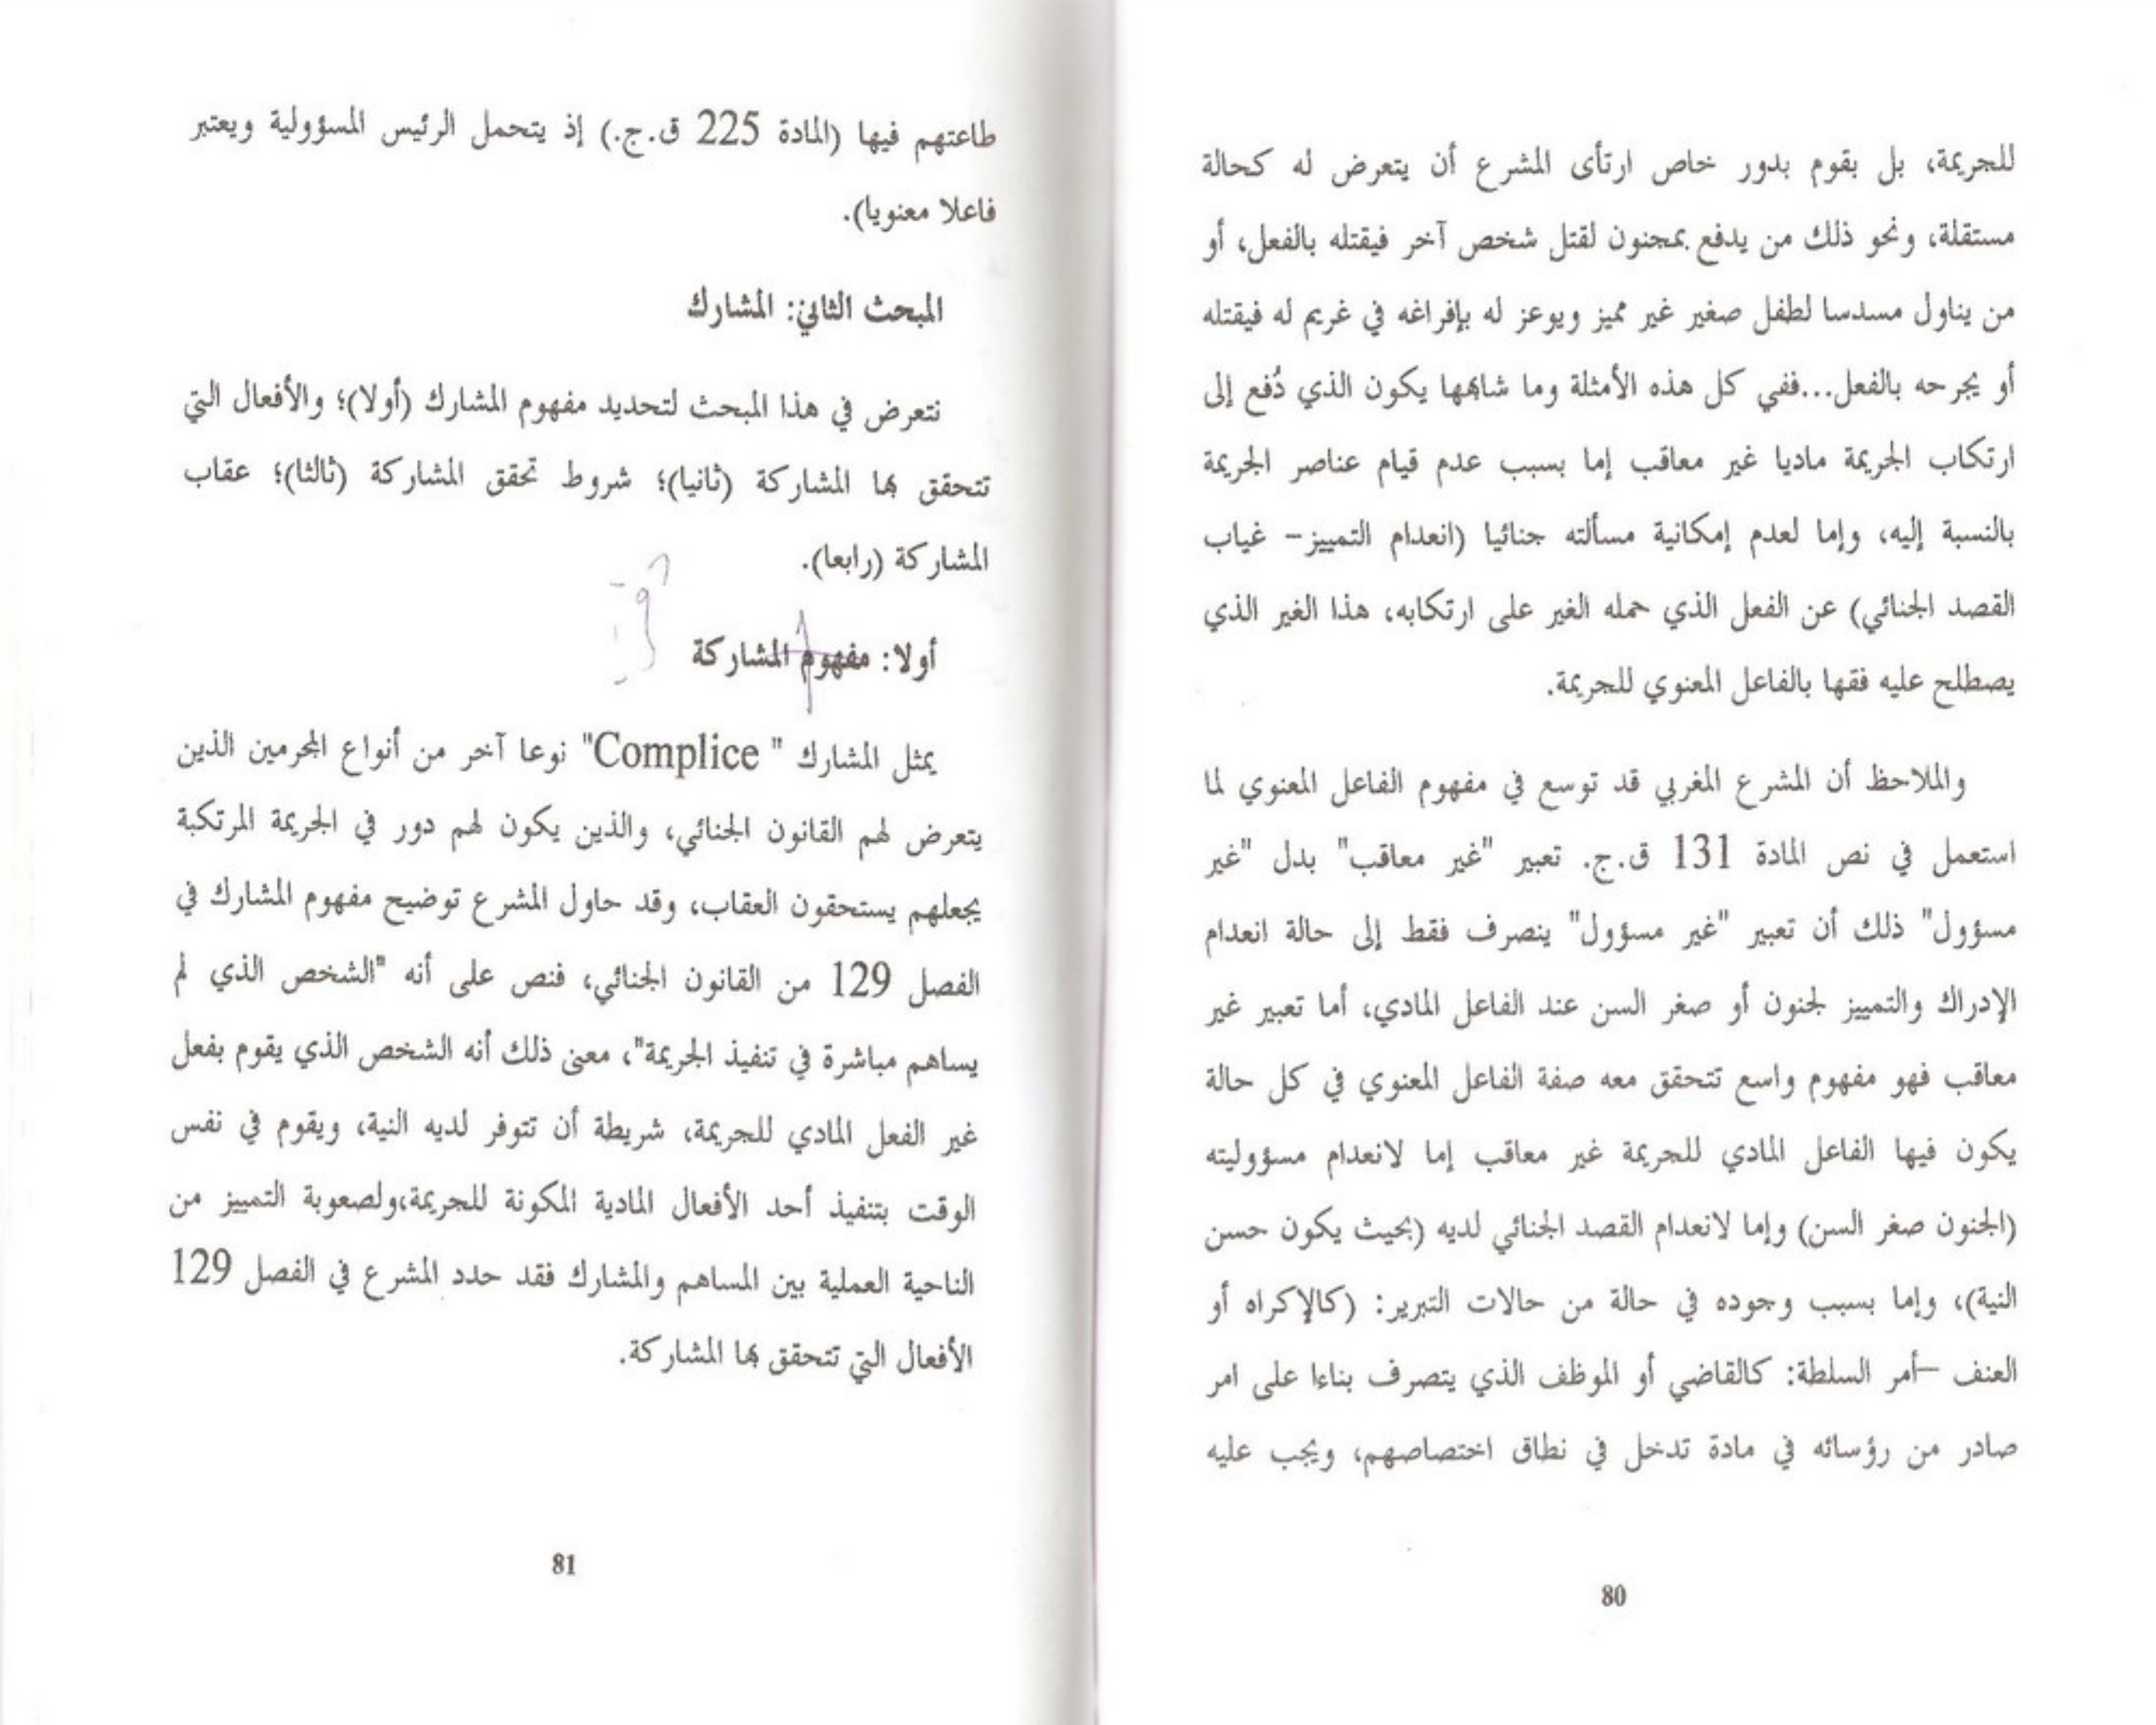 للجريمة، بل بقوم بدور خاص ارتأى المشرع أن يتعرض له كحالة
مستقلة، ونحو ذلك من يدفع بمجنون لقتل شخص آخر فيقتله بالفعل، أو
من يناول مسدسا لطفل صغير غير مميز ويوعز له بإفراغه في غريم له فيقتله
أو يجرحه بالفعل...ففي كل هذه الأمثلة وما شابهها يكون الذي دُفع إلى
ارتكاب الجريمة ماديا غير معاقب إما بسبب عدم قيام عناصر الجريمة
بالنسبة إليه، وإما لعدم إمكانية مسألته جنائيا (انعدام التمييز– غياب
القصد الجنائي) عن الفعل الذي حمله الغير على ارتكابه، هذا الغير الذي
يصطلح عليه فقها بالفاعل المعنوي للجريمة.
والملاحظ أن المشرع المغربي قد توسع في مفهوم الفاعل المعنوي لما
استعمل في نص المادة 131 ق.ج. تعبير "غير معاقب" بدل "غير
مسؤول" ذلك أن تعبير "غير مسؤول" ينصرف فقط إلى حالة انعدام
الإدراك والتمييز لجنون أو صغر السن عند الفاعل المادي، أما تعبير غير
معاقب فهو مفهوم واسع تتحقق معه صفة الفاعل المعنوي في كل حالة
يكون فيها الفاعل المادي للجريمة غير معاقب إما لانعدام مسؤوليته
(الجنون صغر السن) وإما لانعدام القصد الجنائي لديه (بحيث يكون حسن
النية)، وإما بسبب وجوده في حالة من حالات التبرير: (كالإكراه أو
العنف –أمر السلطة: كالقاضي أو الموظف الذي يتصرف بناءا على امر
صادر من رؤسائه في مادة تدخل في نطاق اختصاصهم، ويجب عليه
80
طاعتهم فيها (المادة 225 ق.ج.) إذ يتحمل الرئيس المسؤولية ويعتبر
فاعلا معنويا).
المبحث الثاني: المشارك
نتعرض في هذا المبحث لتحديد مفهوم المشارك (أولا)؛ والأفعال التي
تتحقق بها المشاركة (ثانيا)؛ شروط تحقق المشاركة (ثالثا)؛ عقاب
المشاركة (رابعا).
أولا: مفهوم المشاركة
يمثل المشارك " Complice" نوعا آخر من أنواع المجرمين الذين
يتعرض لهم القانون الجنائي، والذين يكون لهم دور في الجريمة المرتكبة
يجعلهم يستحقون العقاب، وقد حاول المشرع توضيح مفهوم المشارك في
الفصل 129 من القانون الجنائي، فنص على أنه "الشخص الذي لم
يساهم مباشرة في تنفيذ الجريمة"، معنى ذلك أنه الشخص الذي يقوم بفعل
غير الفعل المادي للجريمة، شريطة أن تتوفر لديه النية، ويقوم في نفس
الوقت بتنفيذ أحد الأفعال المادية المكونة للجريمة،ولصعوبة التمييز من
الناحية العملية بين المساهم والمشارك فقد حدد المشرع في الفصل 129
الأفعال التي تتحقق بها المشاركة.
81